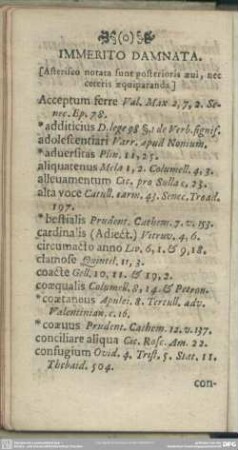 (o)
IMMERITO DAMNATA.
[Asterisco notata sunt posterioris ævi, nec
ceteris æquiparanda]
Acceptum ferre Val. Max 2, 7, 2. Se-
nec. Ep. 78.
*additicius D. lege 98 §. 1 de Verb. signif.
adolescentiari Varr. apud Nonium.
*adversitas Plin. 11, 25.
aliquatenus Mela 1, 2. Columell. 4, 3.
allevamentum Cic. pro Sulla c. 23.
alta voce Catull. carm. 43. Senec. Troad.
197.
*bestialis Prudent. Cathem. 7. v. 153.
cardinalis (Adject.) Vitruv. 4, 6.
circumacto anno Lv. 6, 1. & 9, 18.
clamose Quintil. 11, 3.
coacte Gell. 10, 11. & 19, 2.
coæqualis Columell. 8, 14. & Petron.
*coætanous Apulei. 8. Tertull. adv.
Valentinian. c. 16.
*coævus Prudent. Cathem. 12. v. 137.
conciliare aliqua Cic. Rosc. Am. 22.
confugium Ovid. 4. Trist. 5. Stat. 11.
Thebaid. 504.
con-